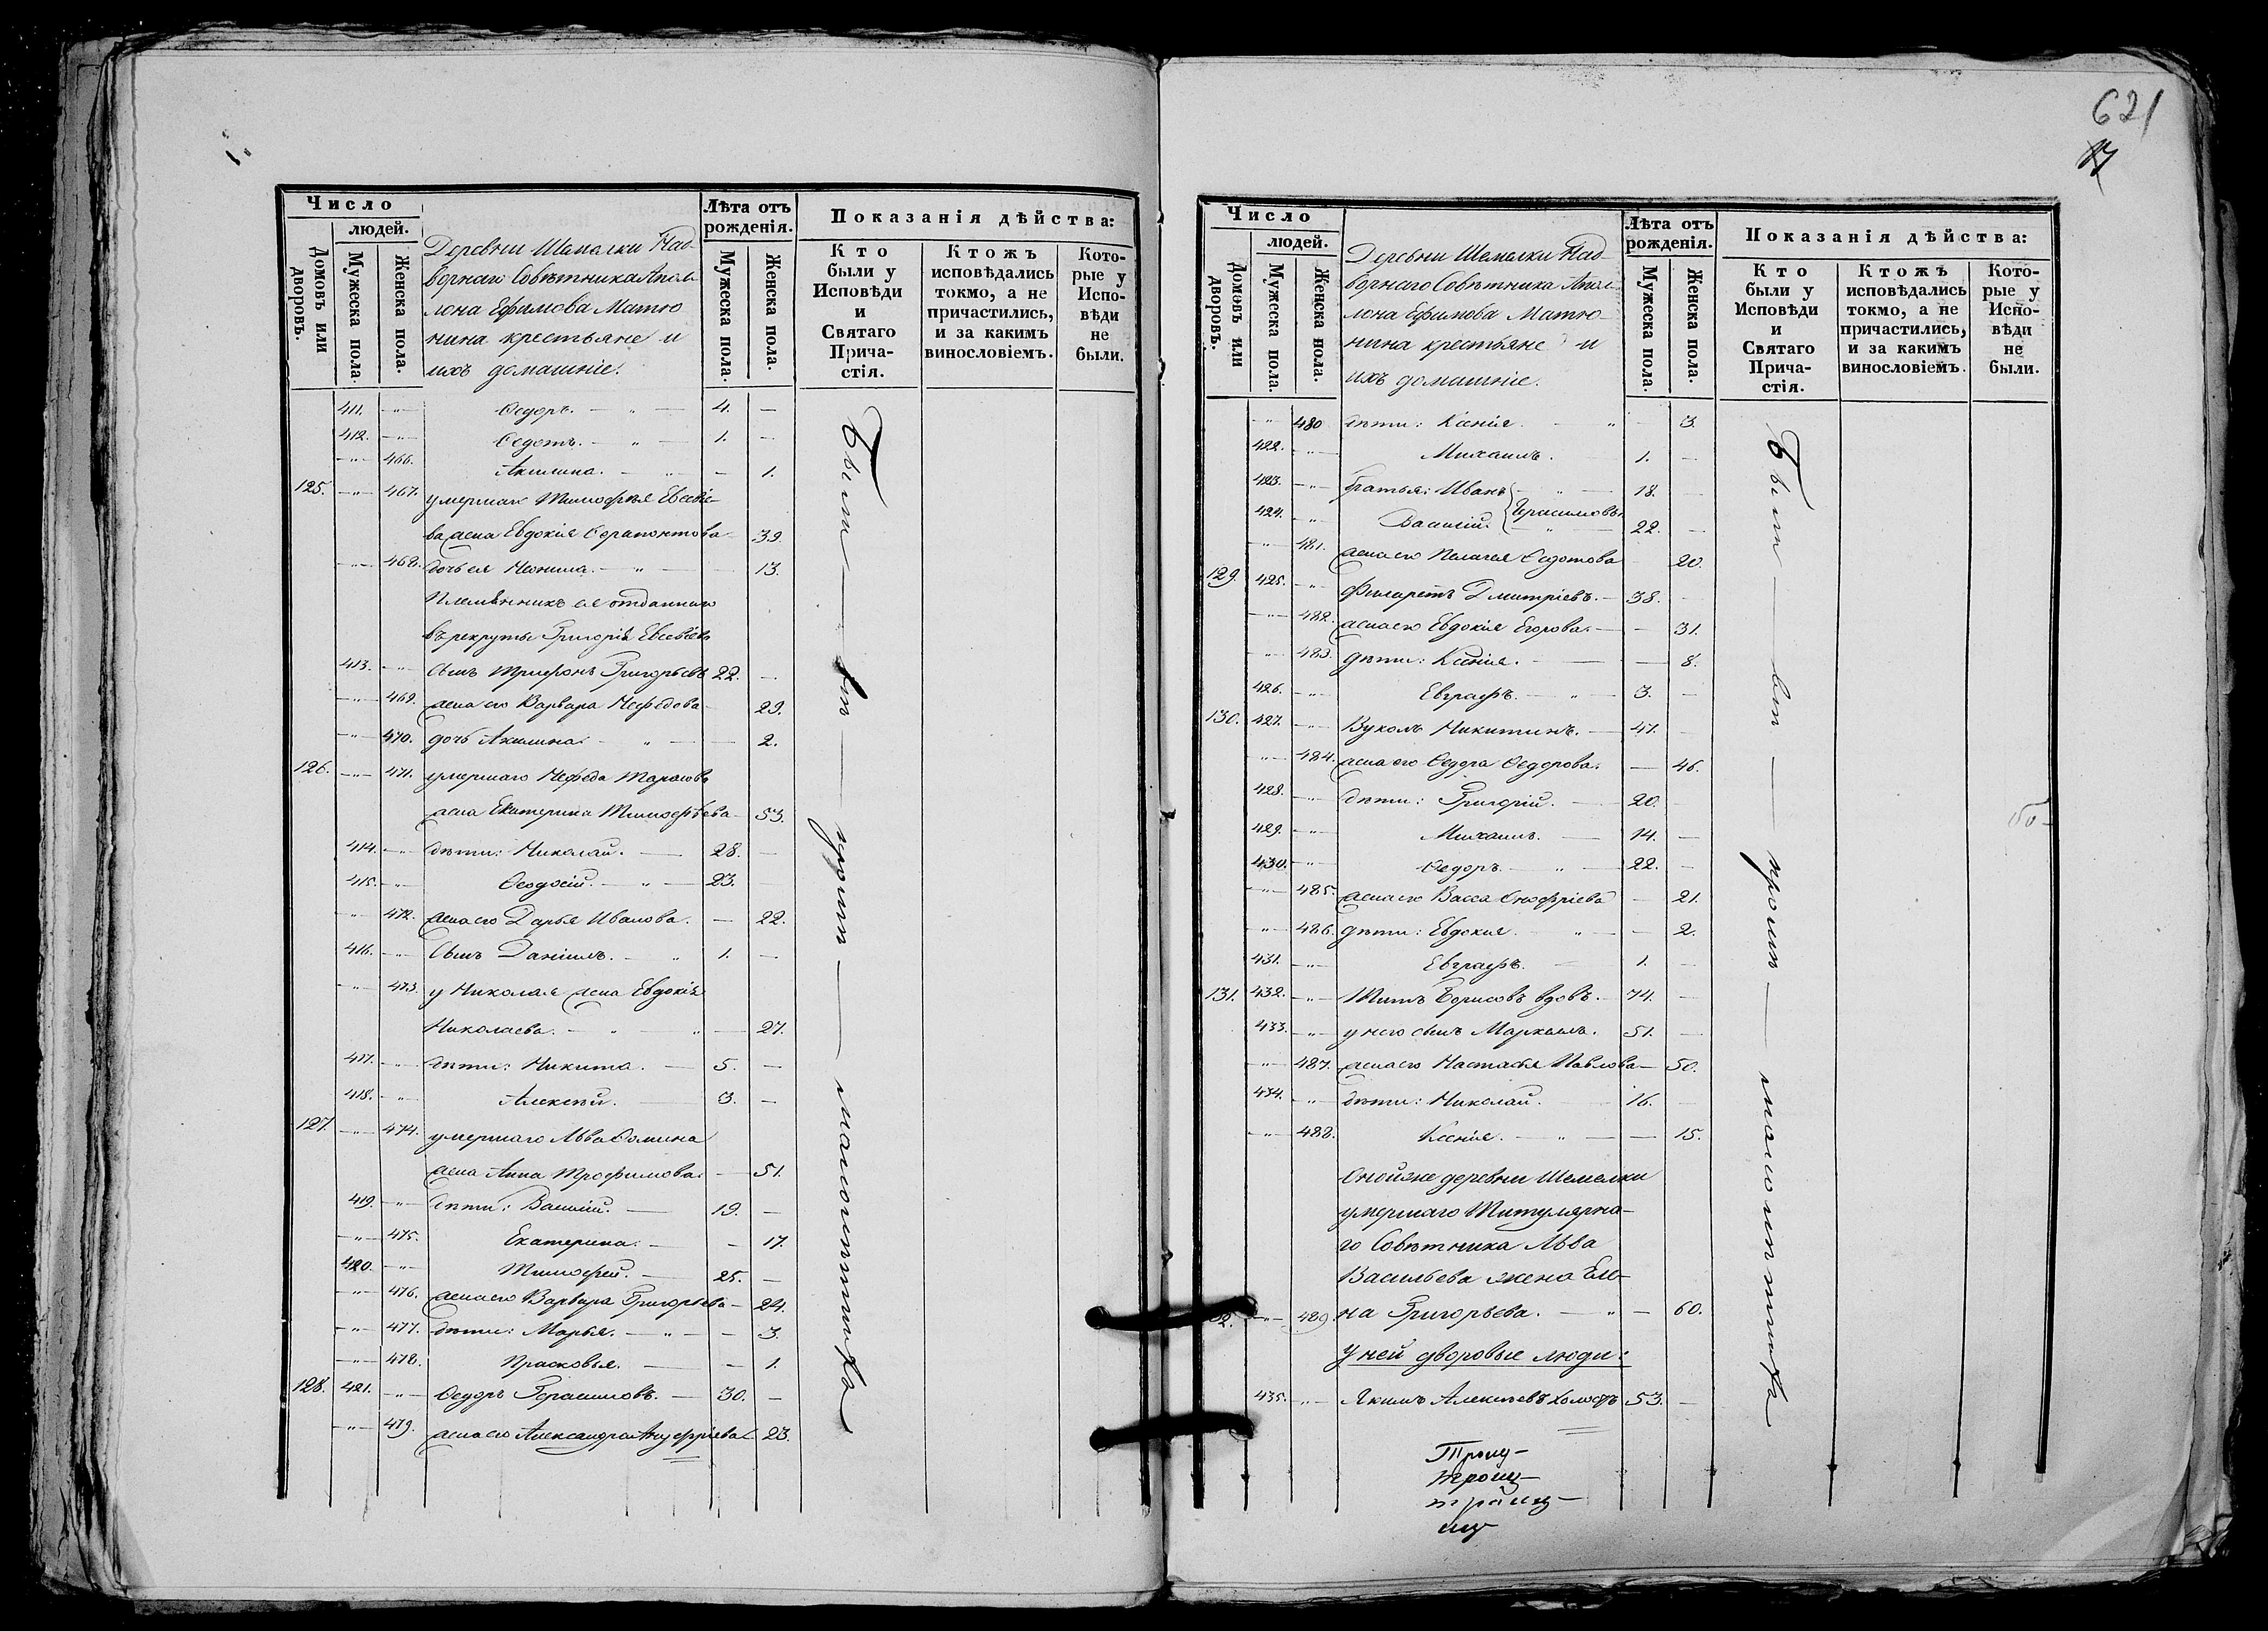 Число
людей.
Домовъ или дворовъ.
Мужеска пола.
Женска пола.
Деревни Шемалки Над-
ворнаго Совѣтника Апол-
лона Ефимова Матю-
нина крестьяне и
ихъ домашніе.
Лѣта отъ рожденія.
Мужеска пола.
Женска пола.
Показанія дѣйства:
Кто были у Исповѣди и Святаго Причастія.
Ктожъ исповѣдались токмо, а не причастились, и за какимъ винословіемъ.
Которые у Исповѣди не были.
411. — Ѳедоръ. — 4. —
412. — Ѳедотъ. — 1. —
— 466. Акилина. — — 1.
125. — 467. умершаго Тимофѣя Евсѣе-
ва жена Евдокія Ѳерапонтова 39.
— 468. дочь ея Неонила. — — 13.
Племянникъ ея отданнаго
въ рекруты Григорія Евсѣева
413. — сынъ Трифонъ Григорьевъ 22. —
— 469. жена его Варвара Нефедова 29.
— 470. дочь Акилина — — 2.
126. — 471. умершаго Нефеда Тарасова
жена Екатерина Тимофѣева — 53.
414. — дѣти: Николай. — 28. —
415. — Ѳеодосій. — 23.
— 472. жена его Дарья Иванова. — 22.
416. — сынъ Даніилъ. — 1. —
— 473. у Николая жена Евдокія
Николаева. — — 27.
417. — дѣти: Никита. — 5. —
418. — Алексѣй. — 3. —
127. — 474. умершаго Льва Ѳомина
жена Анна Трофимова. — 51.
419. — дѣти: Василій. — 19. —
— 475. Екатерина. — — 17.
420. — Тимофей. — 25. —
— 476. жена его Варвара Григорьева — 24.
— 477. дѣти: Марья. — — 3.
— 478. Прасковья. — — 1.
128. 421. — Ѳедоръ Герасимовъ. — 30. —
— 479. жена его Александра Андреева 23.
Были
621
17
Число
людей.
Домовъ или дворовъ.
Мужеска пола.
Женска пола.
Деревни Шемалки Над-
ворнаго Совѣтника Апол-
лона Ефимова Матю-
нина крестьяне и
ихъ домашніе.
Лѣта отъ рожденія.
Мужеска пола.
Женска пола.
Показанія дѣйства:
Кто были у Исповѣди и Святаго Причастія.
Ктожъ исповѣдались токмо, а не причастились, и за какимъ винословіемъ.
Которые у Исповѣди не были.
— 480. дѣти: Ксенія. — — 3.
422. — Михаилъ. 1. —
423. — братья: Иванъ — 18. —
Герасимовы
424. — Василій. — 22. —
— 481. жена его Пелагея Ѳедотова 20.
129. 425. — Филаретъ Дмитріевъ. — 38. —
— 482. жена его Евдокія Егорова. — — 31.
— 483. дѣти: Ксенія. — — 8.
426. — Евграфъ. — 3. —
130. 427. — Вуколъ Никитинъ. — 47. —
— 484. жена его Ѳедора Ѳедорова. — 46.
428. — дѣти: Григорій. — 20. —
429. — Михаилъ. — 14. —
430. — Ѳедоръ. — 22. —
— 485. жена его Васса Онофріева — 21.
— 486. дѣти: Евдокія. — — 2.
431. — Евграфъ. — 1. —
131. 432. — Титъ Борисовъ вдовъ. — 74. —
433. — у него сынъ Маркелъ. 51. —
— 487. жена его Настасья Павлова — 50.
434. — дѣти: Николай. — 16. —
— 488. Ксенія. — — 15.
Онойже деревни Шемалки
умершаго Титулярна-
го Совѣтника Льва
Васильева жена Еле-
— 489. на Григорьева. — — 60.
У ней дворовые люди:
435. — Якимъ Алексѣевъ холостъ 53. —
Были